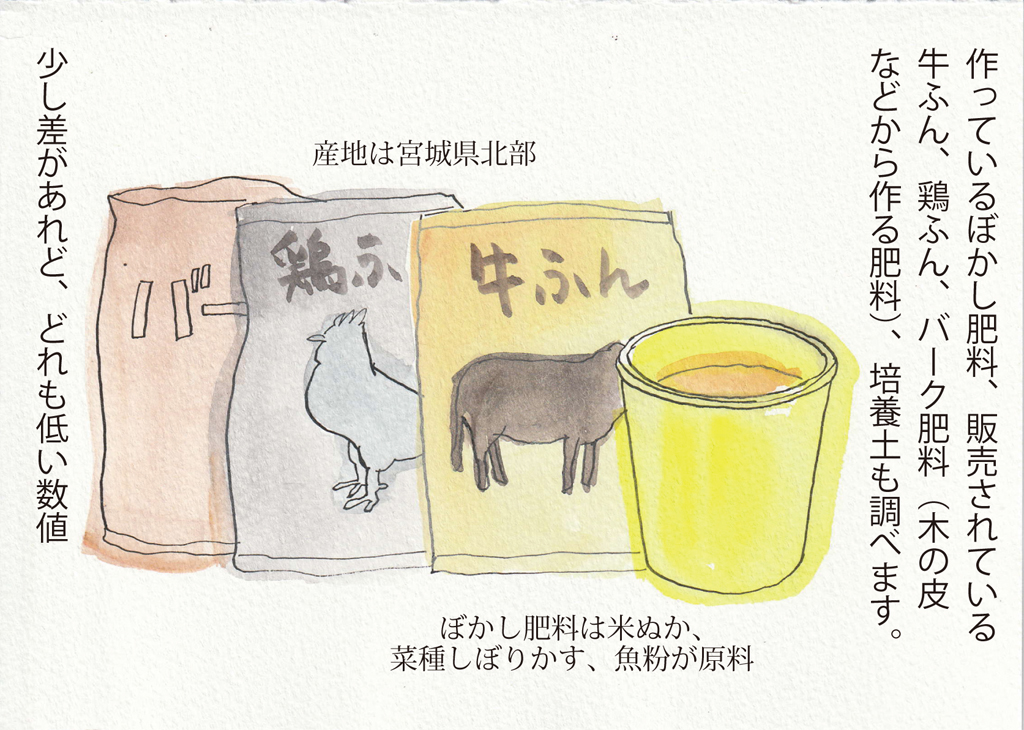 作っているぼかし肥料、販売されている
牛ふん、鶏ふん、バーク肥料（木の皮
などから作る肥料）、培養土も調べます。
産地は宮城県北部
バー
鶏ふ
牛ふん
ぼかし肥料は米ぬか、
菜種しぼりかす、魚粉が原料
少し差があれど、どれも低い数値